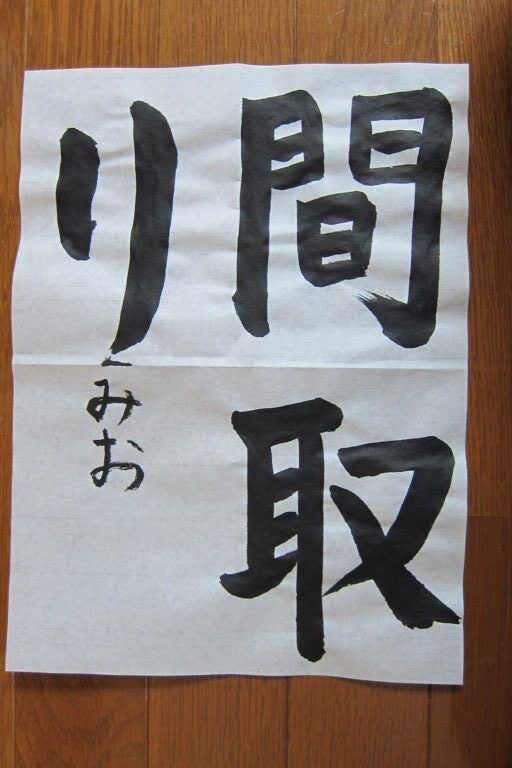 間取
り
みお